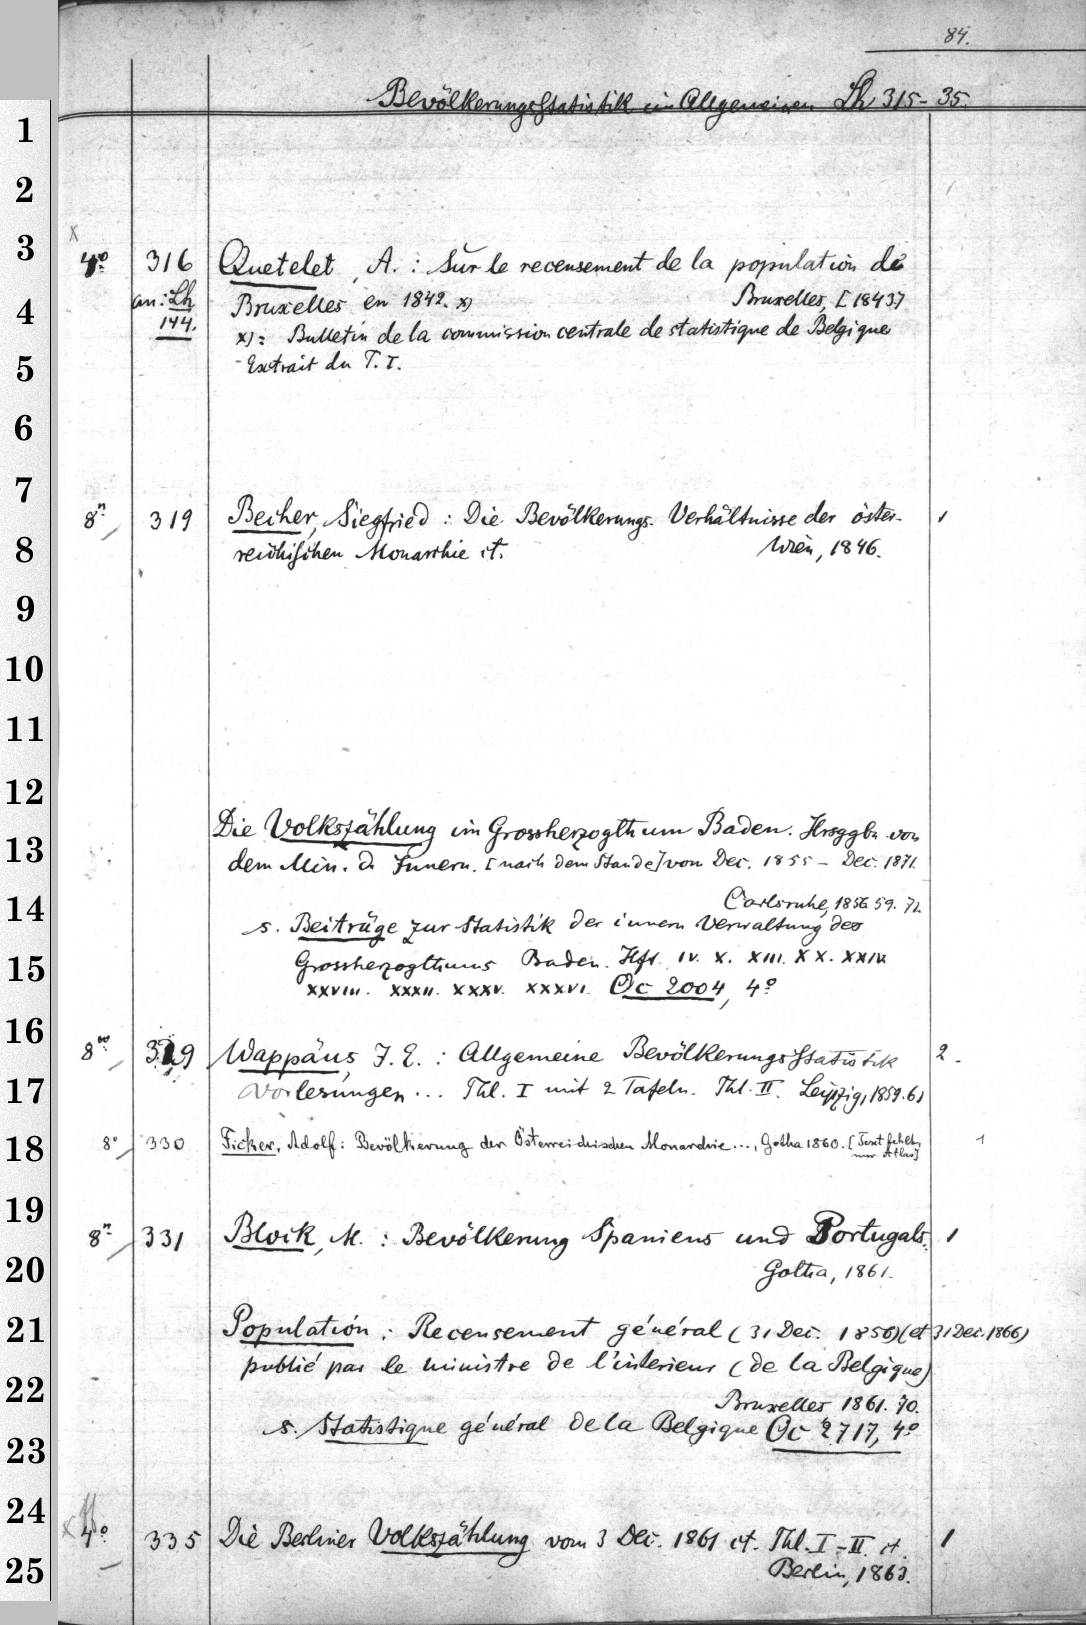 84.
Bevölkerungsstatistik im Allgemeinen Lh 315-35.
1
2
3
4° 316 Quetelet, A.: Sur le recensement de la population de
4
an: Lh Bruxelles en 1842. x) Bruxelles, [1843]
144. x): Bulletin de la commission centrale de statistique de Belgique
5
- Extrait du T. I.
6
7
8° 319 Becher, Siegfried: Die Bevölkerungs-Verhältnisse der öster- 1
8
reichischen Monarchie it. Wien, 1846.
9
10
11
12
Die Volkszählung im Grossherzogthum Baden. Hrsggbn von
13
dem Min. d Innern. [nach dem Stande] vom Dec. 1855 - Dec. 1871.
14
Carlsruhe, 1856 59. 72
s. Beiträge zur Statistik der innern Verwaltung des
15
Grossherzogthums Baden. Hft. IV. X. XIII. XX. XXIV.
XXVIII. XXXII. XXXV. XXXVI. Oc 2004, 4°
16
8° 329 Wappäus, J. E.: Allgemeine Bevölkerungsstatistik 2.
17
Vorlesungen... Thl. I mit 2 Tafeln. Thl. II. Leipzig, 1859.61
18
8° 330 Ficker, Adolf: Bevölkerung der Österreichischen Monarchie..., Gotha 1860. [Text fehlt, 1
nur Atlas]
19
8° 331 Block, M.: Bevölkerung Spaniens und Portugals. 1
20
Gotha, 1861.
21
Population: Recensement général (31 Dec. 1856) (et 31 Dec. 1866)
publié par le ministre de l'interieur (de la Belgique)
22
Bruxelles 1861. 70.
s. Statistique général de la Belgique Oc 2717, 4°
23
24
x 4° 335 Die Berliner Volkszählung vom 3 Dec. 1861 it. Thl. I-II. it. 1
25
Berlin, 1863.